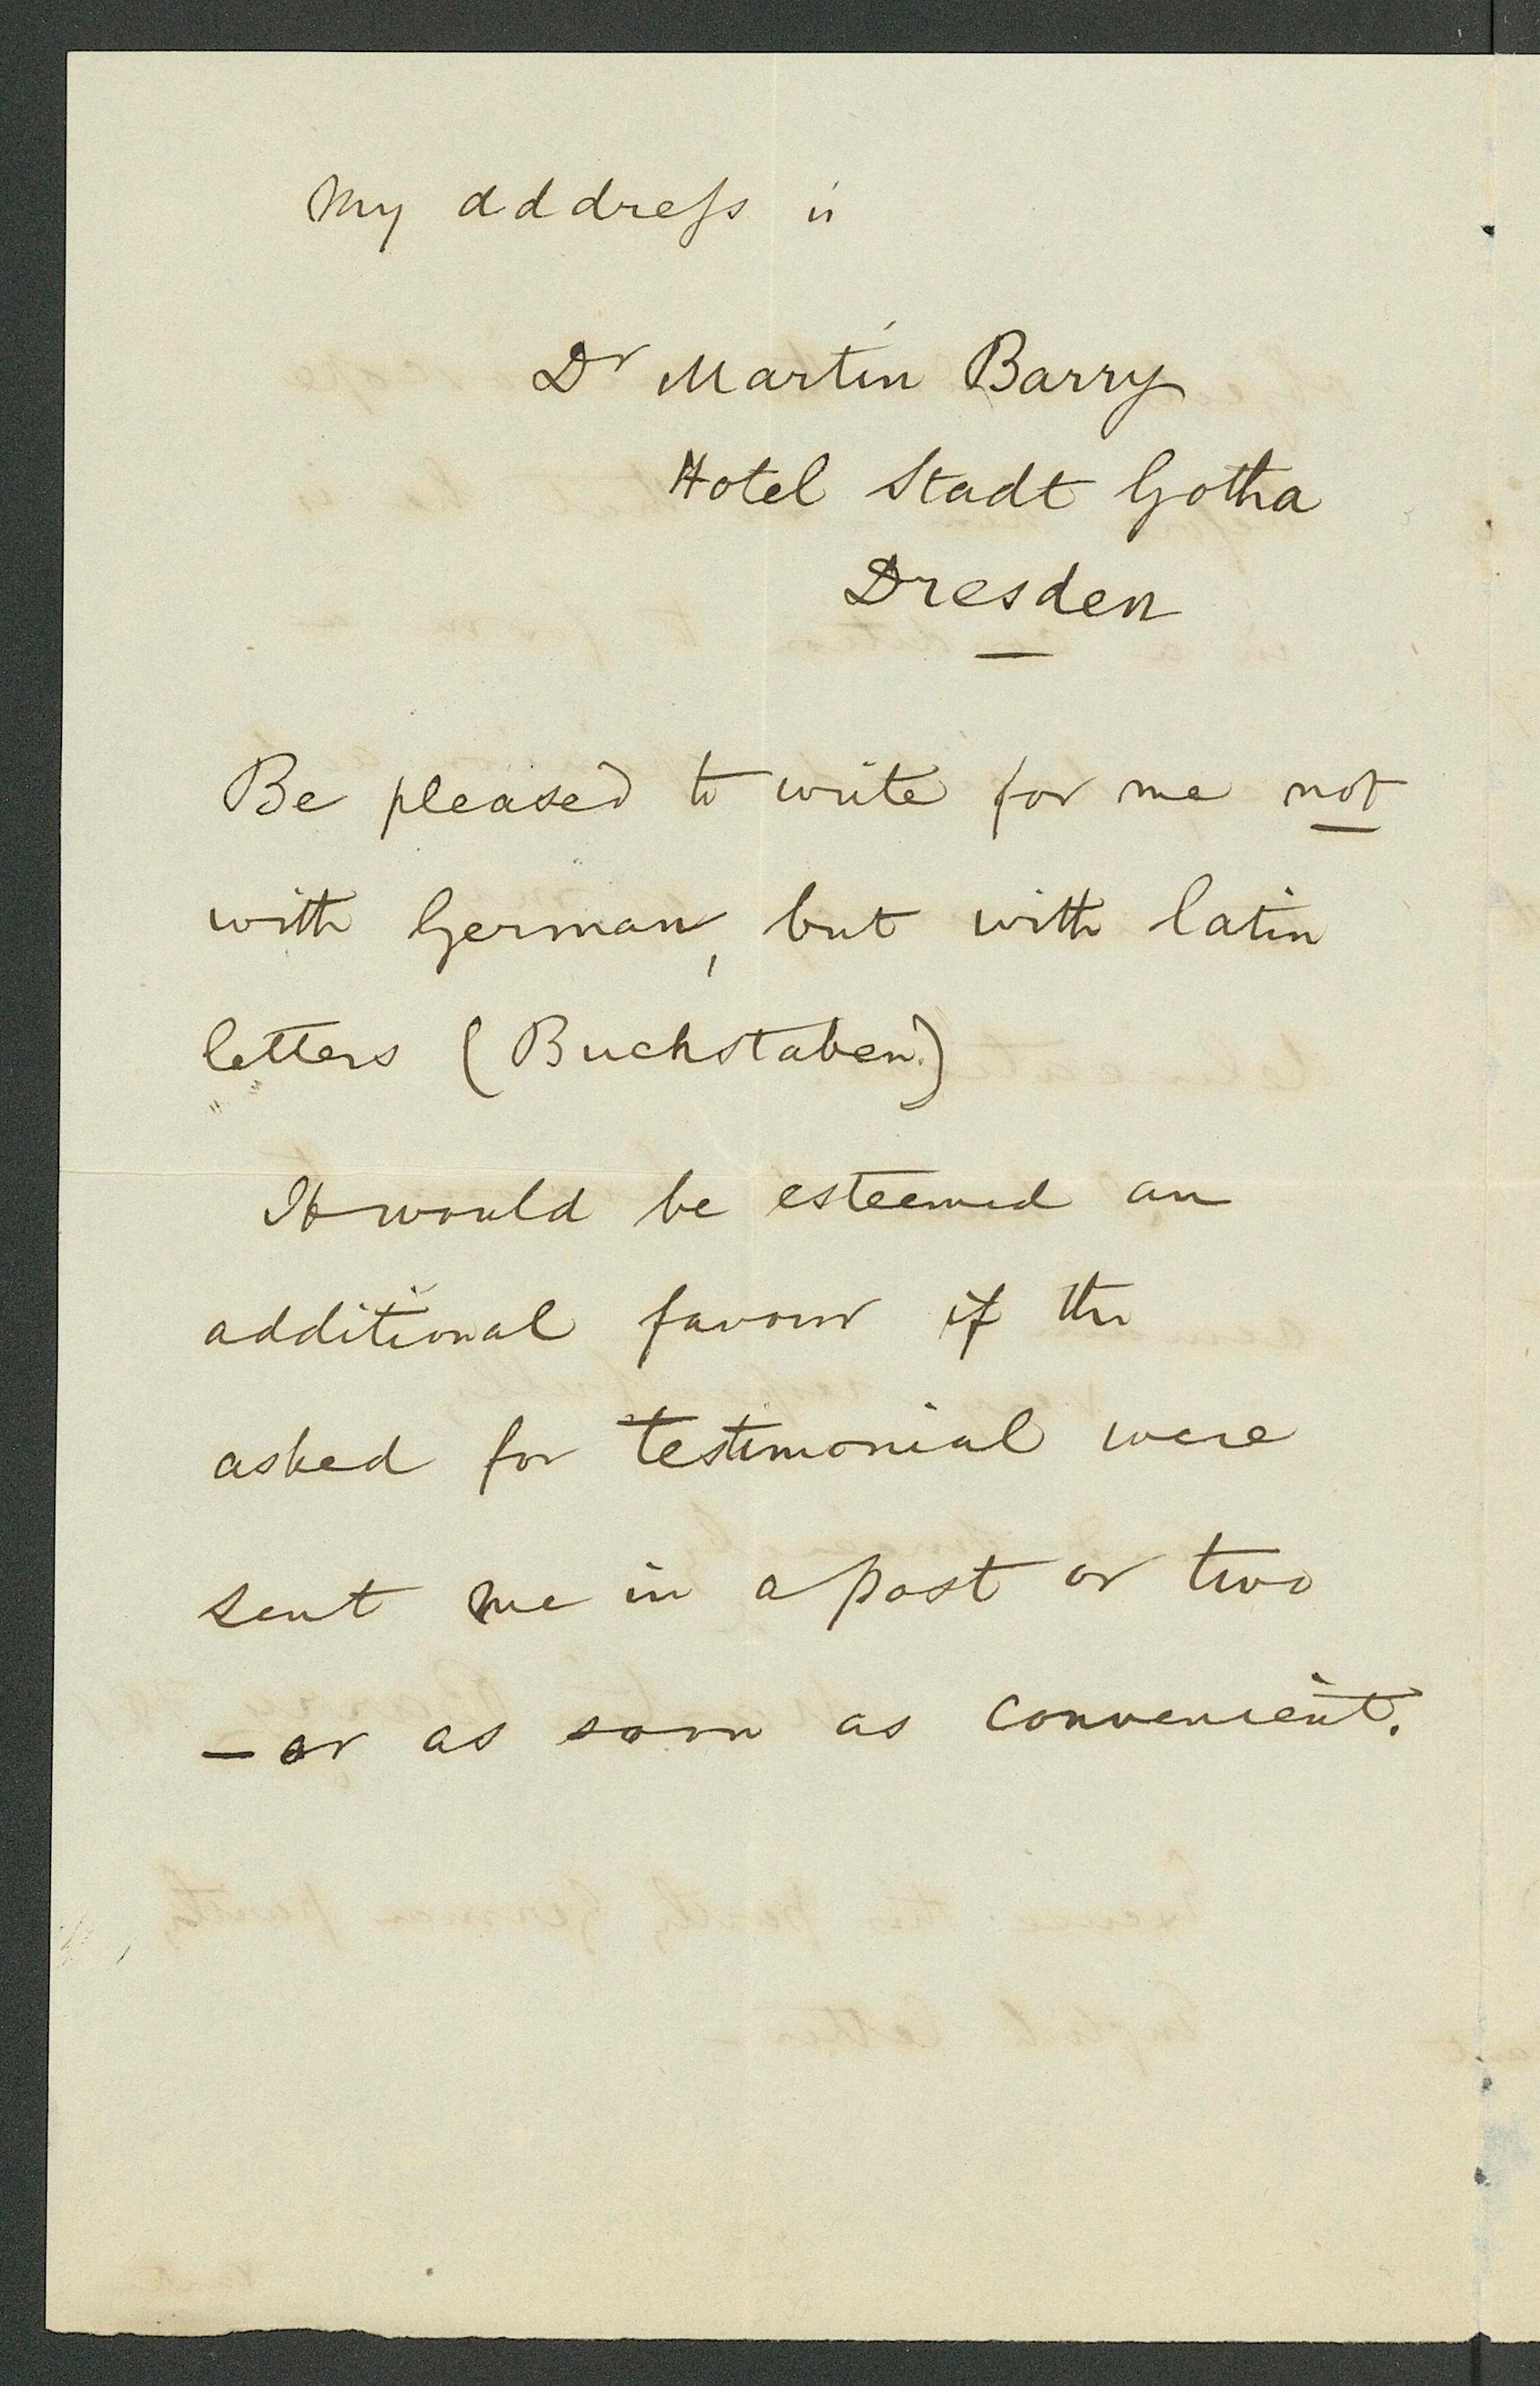 My adddreſs is
Dr Martin Barry
Hotel Stadt Gotha
Dresden
Be pleased to write for me not
with German, but with latin
letters (Buchstaben.)
It would be esteemed an
additional favour if the
asked for testimonial were
sent me in a post or two
— or as soon as convenient.